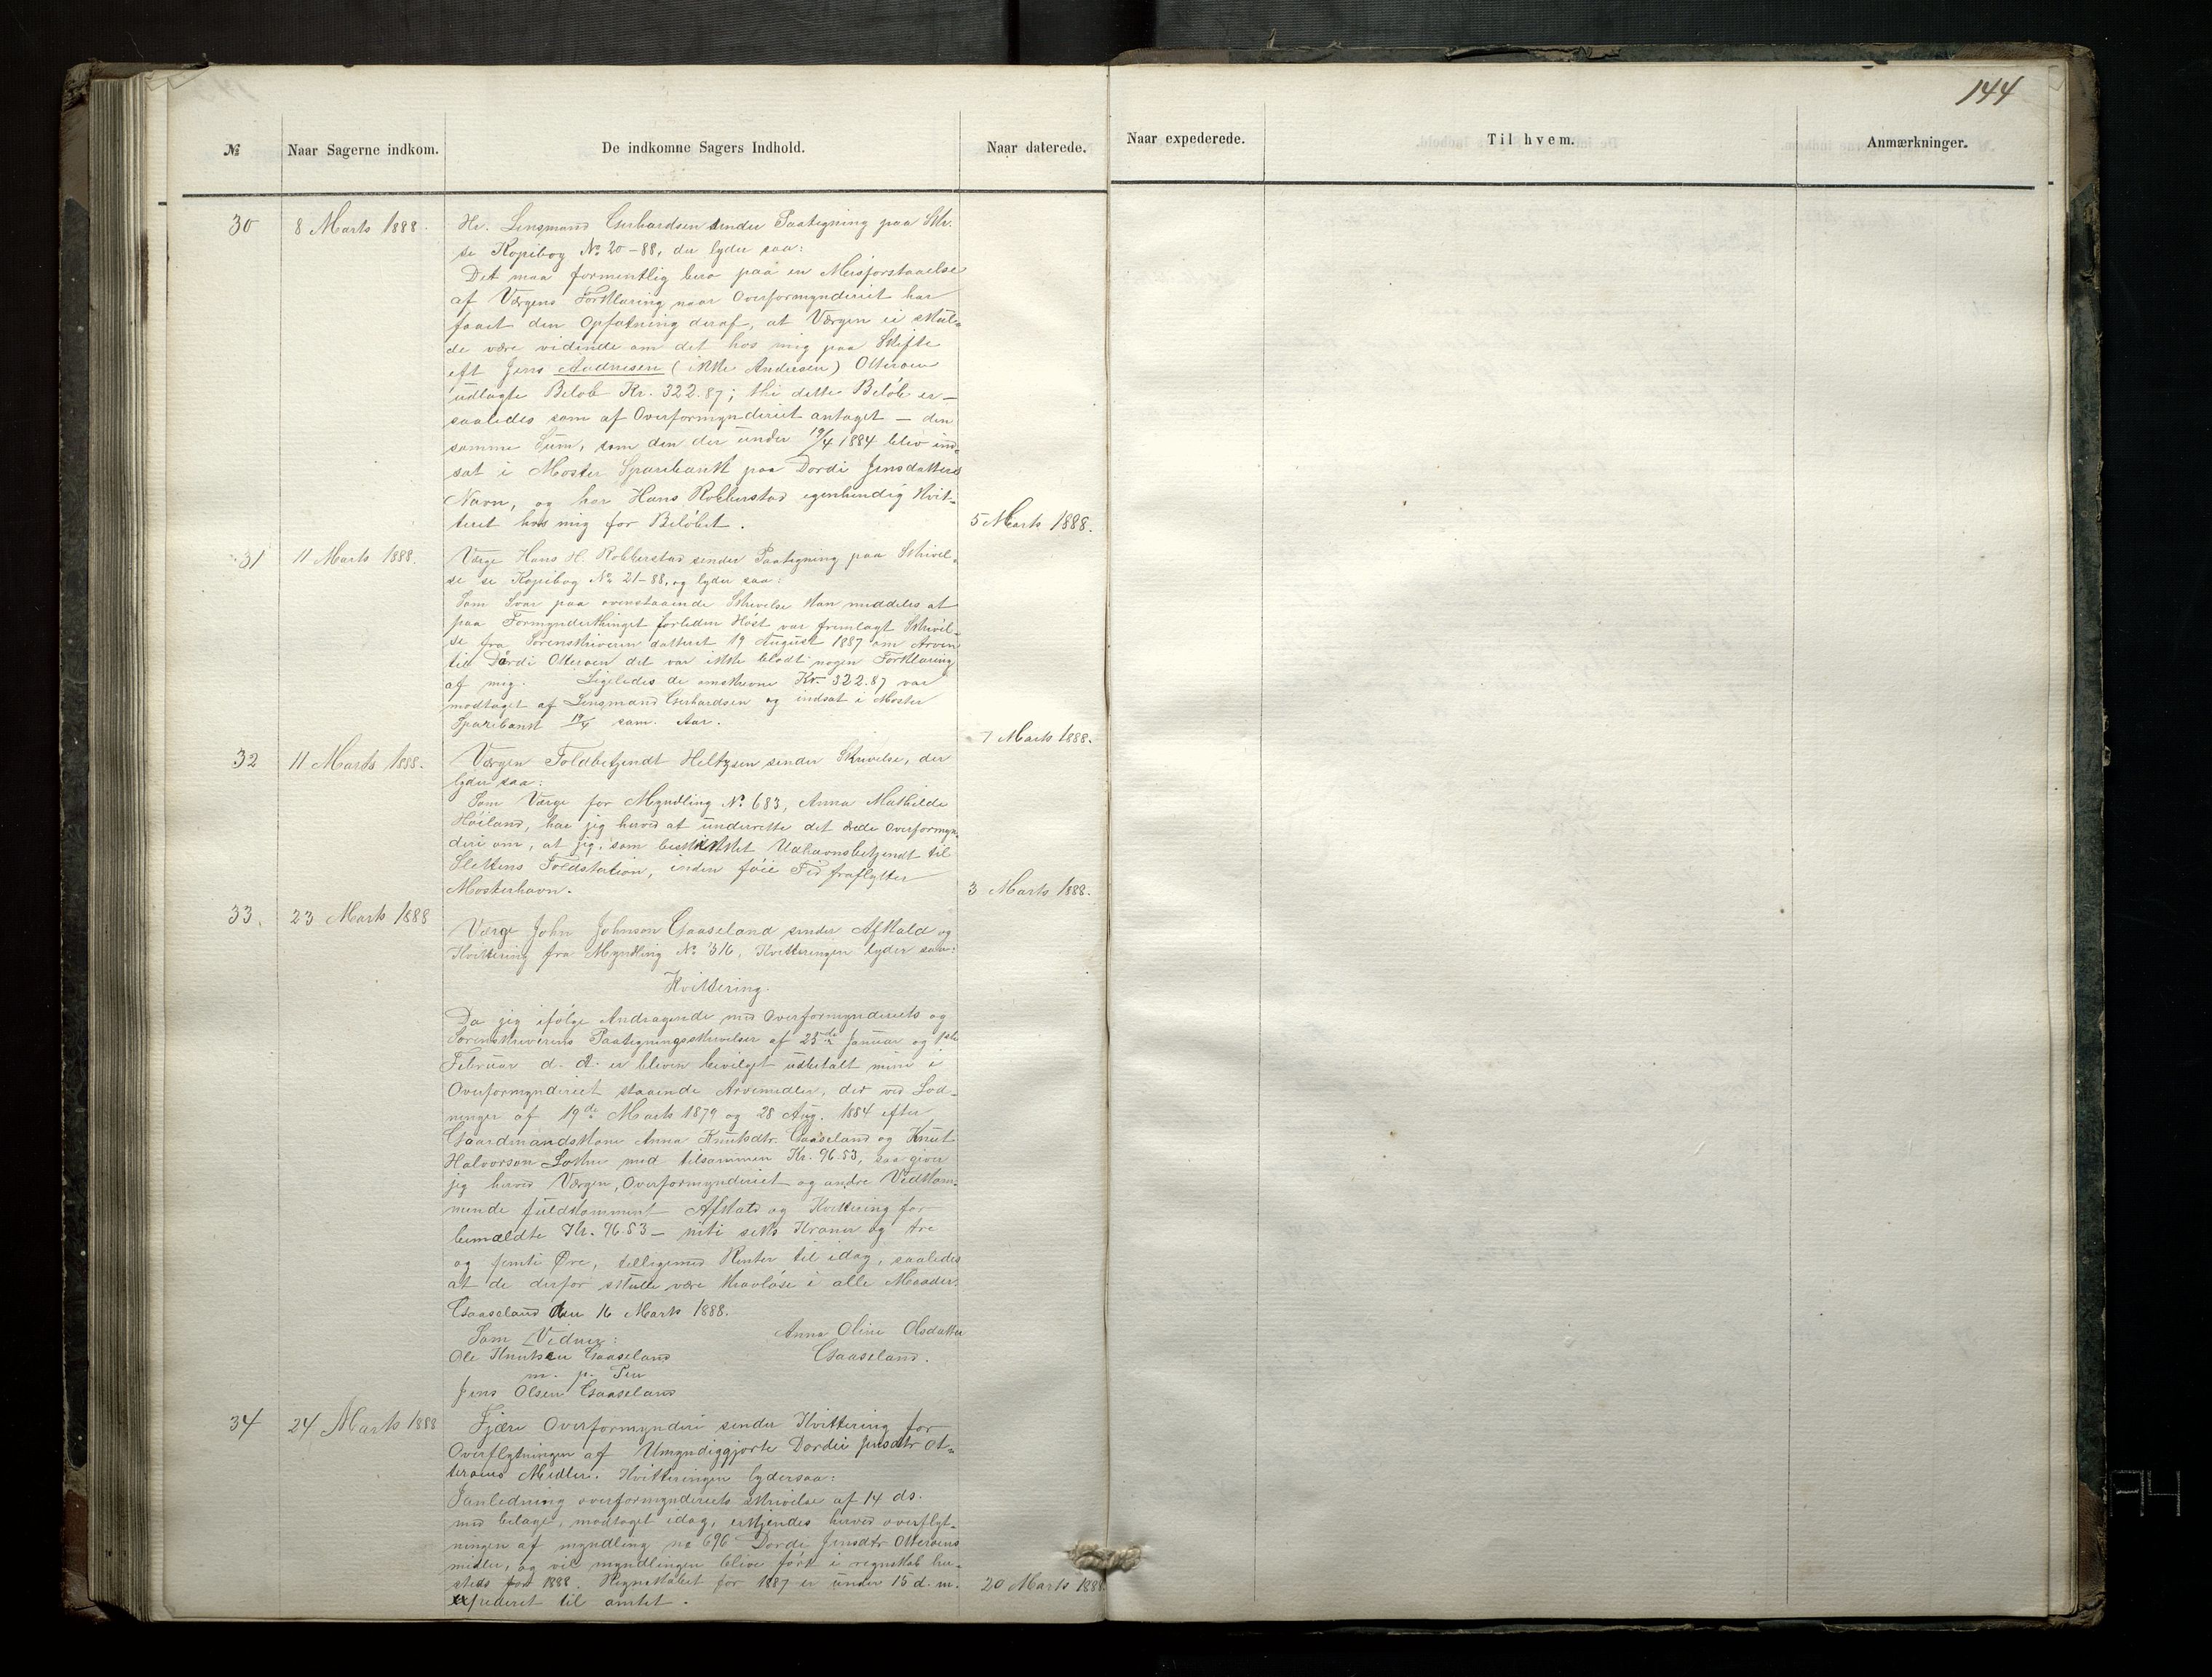 144
№ Naar Sagerne indkom. De indkomne Sagers Indhold. Naar daterede. Naar expederede. Til hvem. Anmærkninger.
30 8 Marts 1888. Hr. Lensmand Gerhardsen sender Paategning paa Skr.
se Kopibog No 20-88, der lyder saa:
Det maa formentlig bero paa en Misforstaaelse
af Værgens Forklaring naar Overformynderiet har
faaet den Opfatning deraf, at Værgen ei skul-
de være vidende om det hos mig paa Skifte
eft Jens Aadnesen (ikke Andersen) Otteroen
udlagte Beløb Kr. 322.87; thi dette Beløb er -
saaledes som af Overformynderiet antaget - den
samme Sum, som den der under 19/4 1884 blev ind-
sat i Moster Sparebank paa Dordi Jensdatters
Navn, og har Hans Robberstad egenhendig kvit-
teret hos mig for Beløbet. 5 Marts 1888.
31 11 Marts 1888. Værge Hans H. Robberstad sender Paategning paa Skrivel-
se se Kopibog No 21-88, og lyder saa:
Som Svar paa ovenstaaende Skrivelse kan meddeles at
paa Formynderthinget forleden Høst var fremlagt Skrivel-
se fra Sorenskriveren datteret 19 August 1887 om Arven
til Dårdi Otteroen det var ikke blodt nogen Forklaring
af mig. Ligeledes de omskrevne Kr. 322.87 var
modtaget af Lensmand Gerhardsen og indsat i Moster
Sparebank 19/4 sam. Aar. 7 Marts 1888.
32 11 Marts 1888. Værgen Toldbetjendt Heltzen sender Skrivelse, der
lyder saa:
Som Værge for Myndling No 683, Anna Mathilde
Høiland, har jeg herved at underrette det ærede Overformyn-
deri om, at jeg, som beskikket Udhavnsbetjendt til
Slettens Toldstation, inden føie Tid fraflytter
Mosterhavn. 3 Marts 1888.
33. 23 Marts 1888 Værge John Johnson Gaaseland sender Afkald og
Kvittering fra Myndling No 316, Kvitteringen lyder saa:
Kvittering.
Da jeg ifølge Andragende med Overformynderiets og
Sorenskriverens Paategningsskrivelser af 25de Januar og 1ste
Februar d. A. er bleven bevilget udbetalt mine i
Overformynderiet staaende Arvemidler, der ved Lod-
ninger af 19de Marts 1879 og 28 Aug. 1884 efter
Gaardmandskone Anna Knutsdtr. Gaaseland og Knut
Halvorson Lothe med tilsammen Kr. 96.53, saa giver
jeg herved Værgen, Overformynderiet og andre Vedkom-
mende fuldkomment Afkald og Kvittering for
bemældte Kr. 96.53 - niti seks Kroner og tre
og femti Øre, tilligemed Renter til idag, saaledes
at de derfor skulle være kravløse i alle Maader.
Gaaseland den 16 Marts 1888.
Som Vidner: Anna Oline Olsdatter
Ole Knutsen Gaaseland Gaaseland.
m. p. Pen
Jens Olsen Gaaseland
34 24 Marts 1888 Fjære Overformynderi sender Kvittering for
Overflytningen af Umyndiggjorte Dordei Jensdtr Ot-
teroens Midler. Kvitteringen lydersaa:
Ianledning overformynderiets skrivelse af 14 ds.
med bilage, modtaget idag, erkjendes herved overflyt-
ningen af myndling no 696 Dorde Jensdtr Otteroens
midler, og vil myndlingen blive ført i regnskab her-
steds for 1888. Regnskabet for 1887 er under 15 d. m. 20 Marts 1888
expederet til amtet.